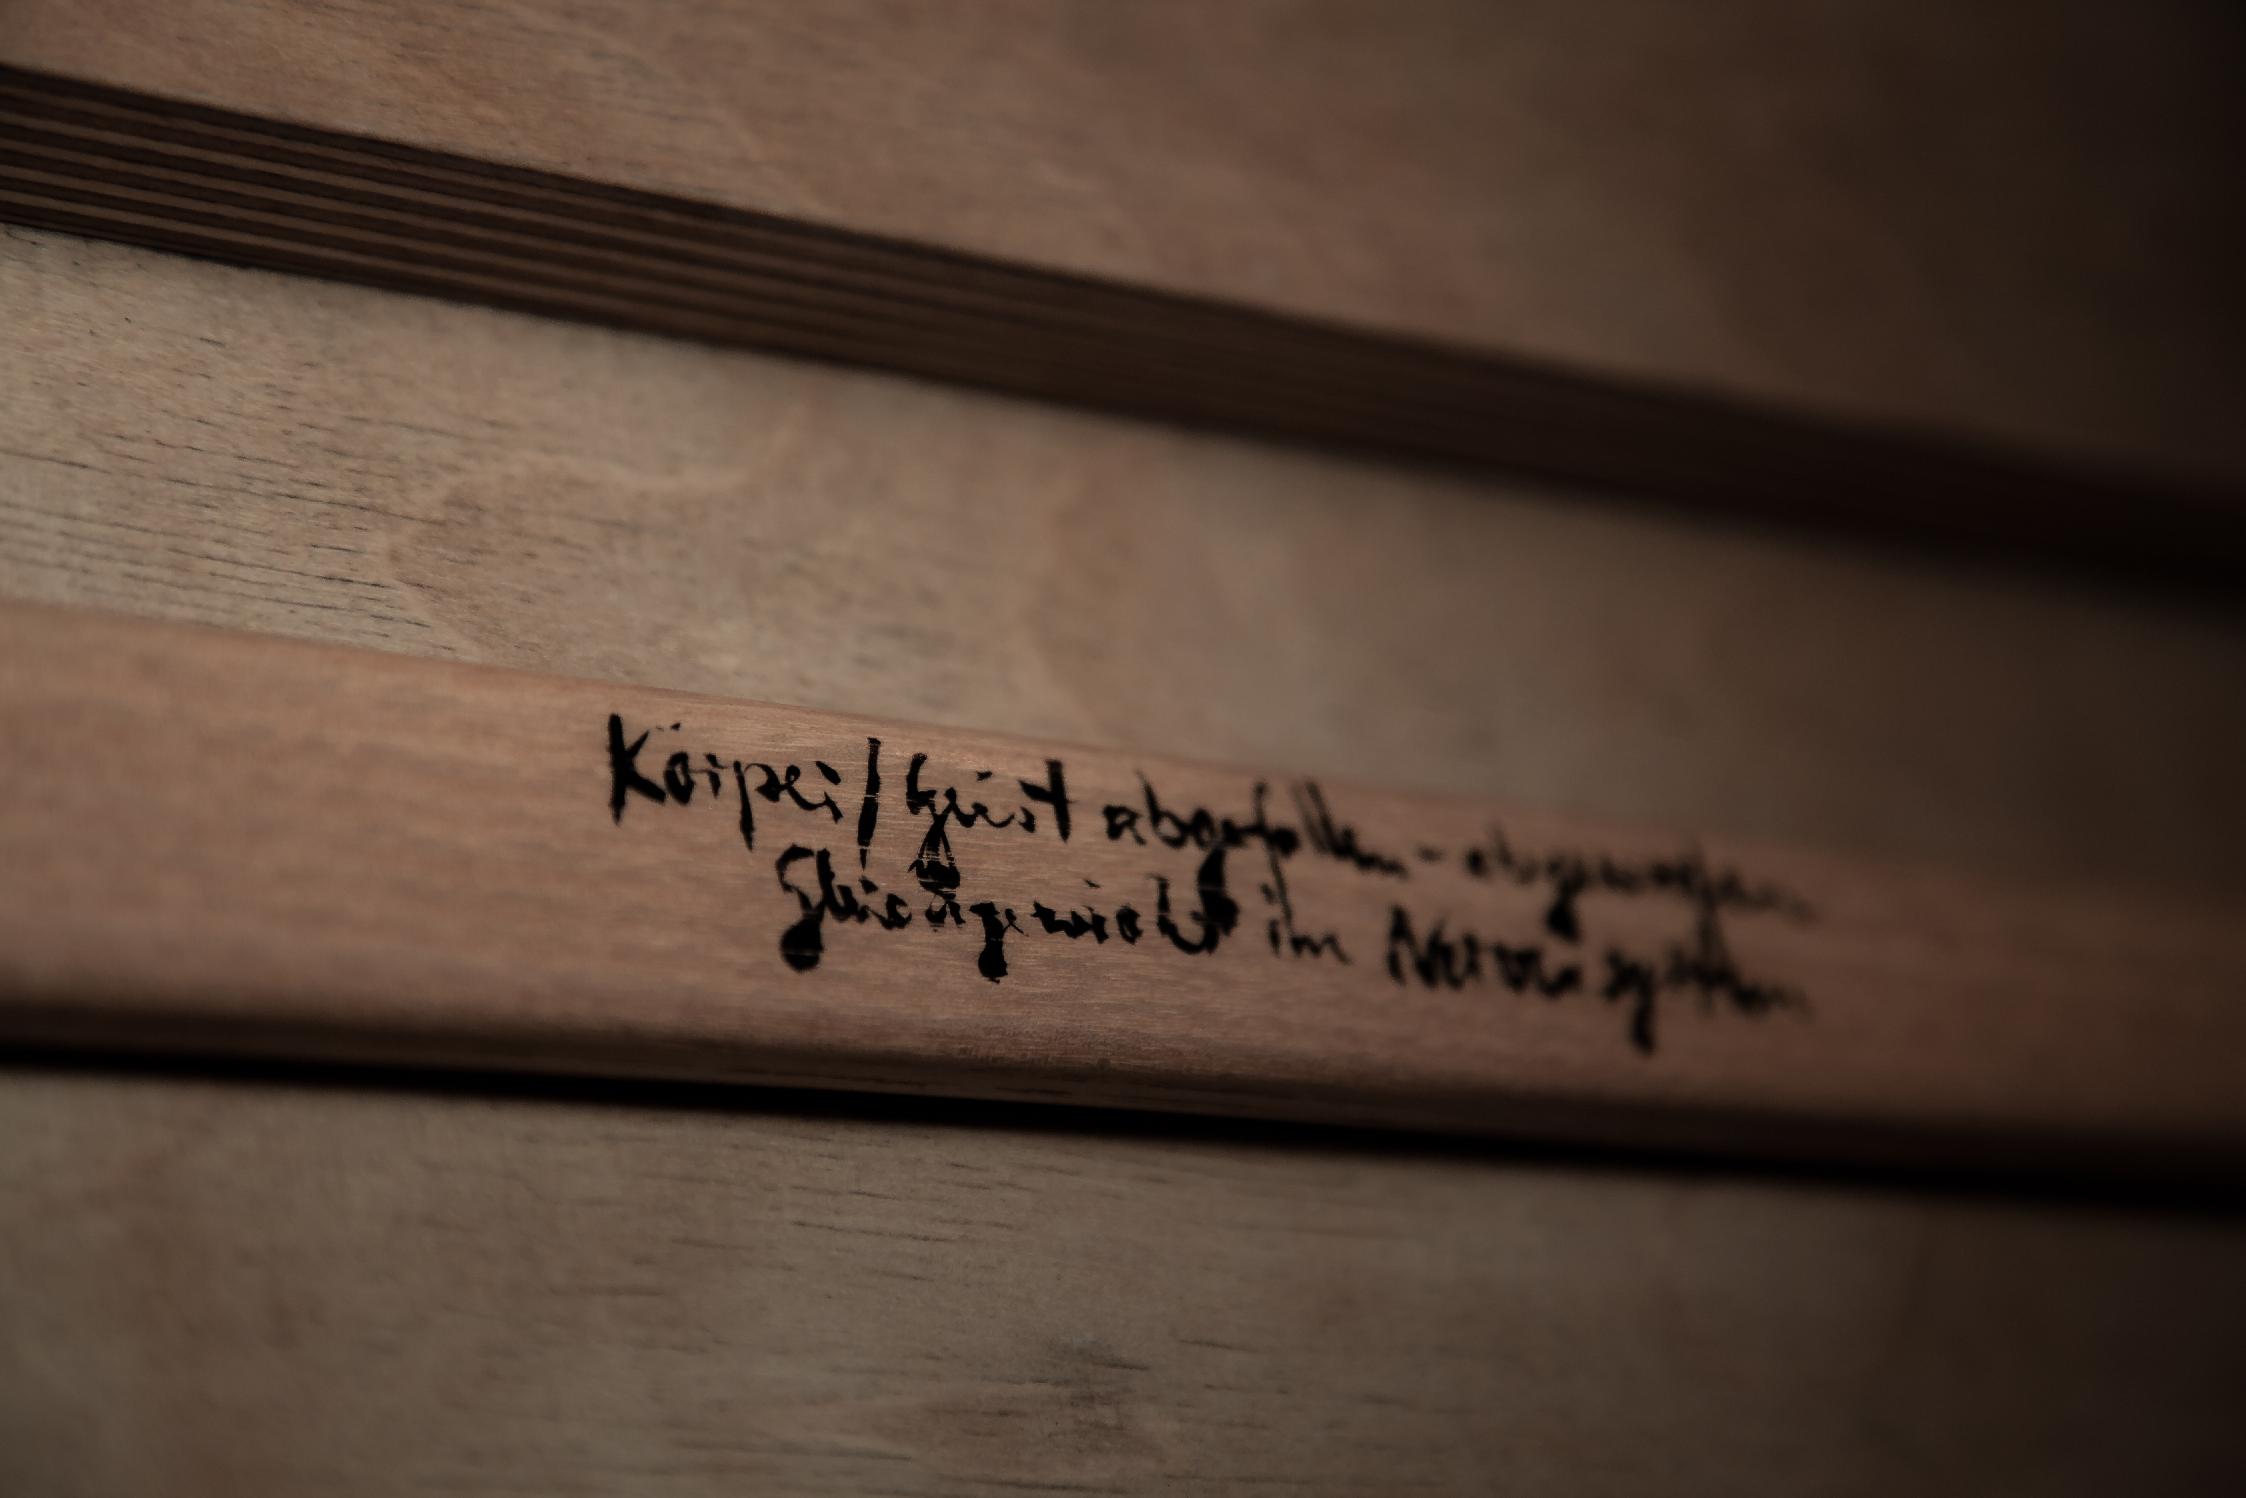 Körper/Geist abgefallen - abgeworfen
Gleichgewicht im Nervensystem